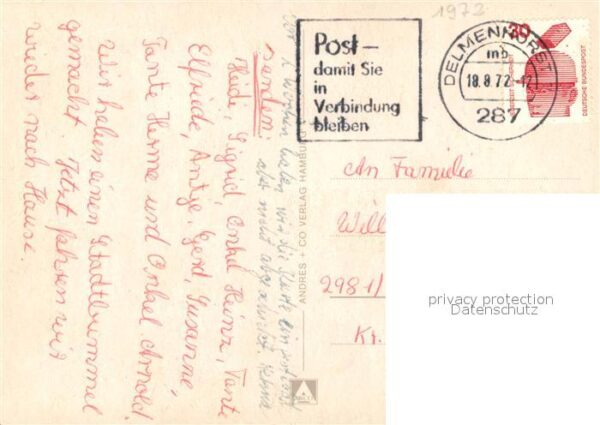 1972
Post –
damit Sie
in
Verbindung
bleiben
DELMENHORST
mb
18.8.72-12
287
30
DEUTSCHE BUNDESPOST
An Familie
Will
2981/
Kr.
privacy protection
Datenschutz
ANDRES + CO VERLAG HAMBURG
Wir haben einen Stadtbummel
gemacht. Jetzt fahren wir
wieder nach Hause.
Tante Herma und Onkel Arnold,
Elfriede, Antje, Gerd, Susanne,
Heidi, Sigrid, Onkel Heinz, Tante
wir die Karte
aber nicht abgeschickt. Herma